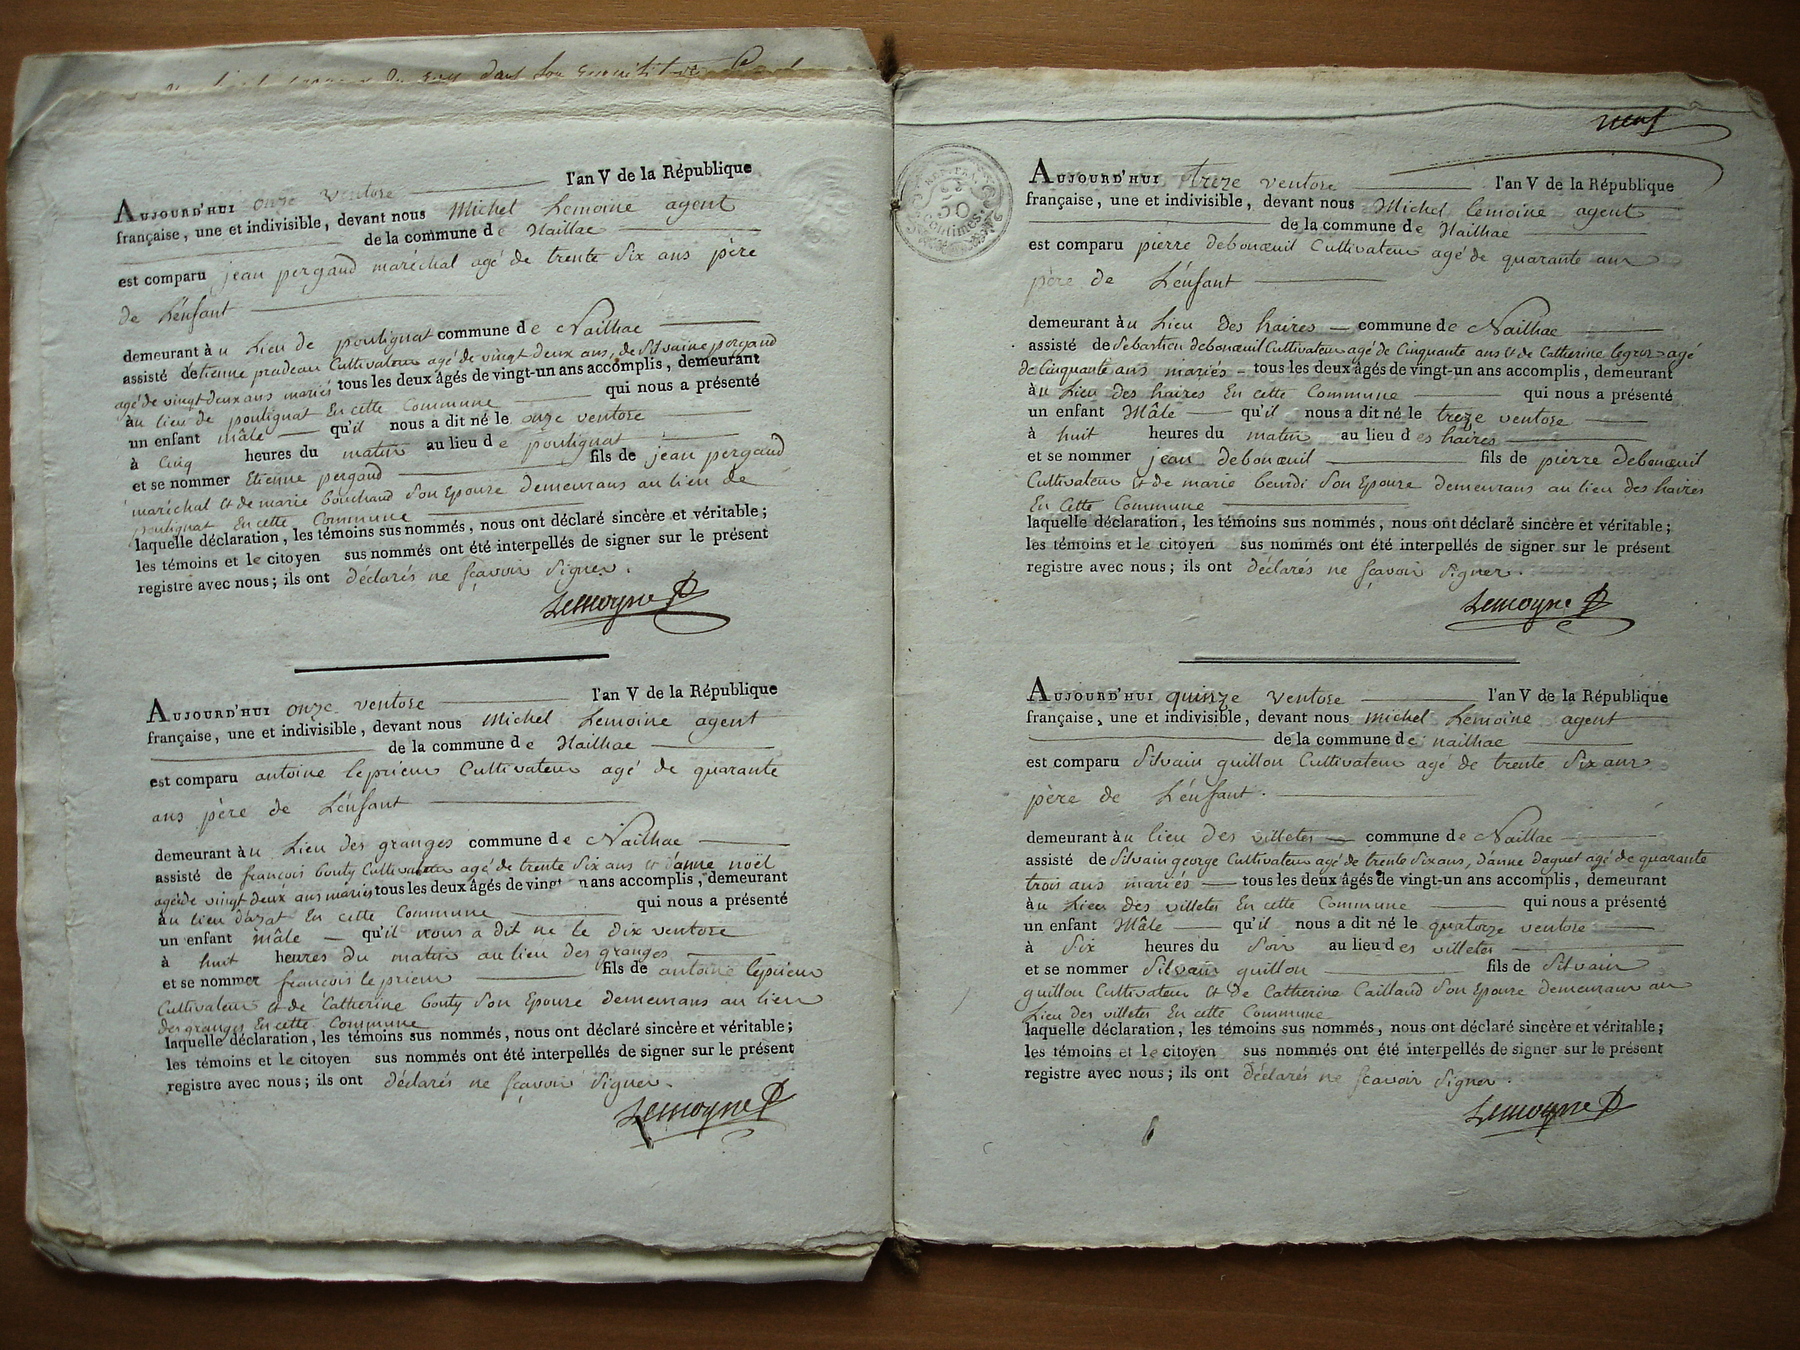 dans son
AUJOURD'HUI onze ventose l'an V de la République
française, une et indivisible, devant nous Michel Lemoine agent
de la commune de Naillac
est comparu jean pergaud maréchal agé de trente six ans père
de L'énfant
demeurant àu Lieu de poulignat commune de Nailhac
assisté detienne pradeau Cultivateur agé de vingt deux ans, de Silvaine pergaud
agé de vingt-deux ans mariés tous les deux âgés de vingt-un ans accomplis, demeurant
àu lieu de poulignat En cette Commune qui nous a présenté
un enfant mâle qu'il nous a dit né le onze ventose
à Cinq heures du matin au lieu de poulignat
et se nommer Etienne pergaud fils de jean pergaud
maréchal Et de marie bouchaud Son Epouse demeurans au lieu de
poulignat En cette Commune
laquelle déclaration, les témoins sus nommés, nous ont déclaré sincère et véritable;
les témoins et le citoyen sus nommés ont été interpellés de signer sur le présent
registre avec nous; ils ont déclarés ne sçavoir Signer.
Lemoyne
AUJOURD'HUI onze ventose l'an V de la République
française, une et indivisible, devant nous Michel Lemoine agent
de la commune de Nailhac
est comparu antoine leprieur Cultivateur agé de quarante
ans père de L'énfant
demeurant àu Lieu des granges commune de Nailhac
assisté de françois bouty Cultivateur agé de trente Six ans et d'anne noël
agéde vingt deux ans mariés tous les deux âgés de vingt nans accomplis, demeurant
àu lieu dazat En cette Commune qui nous a présenté
un enfant mâle qu'il nous a dit né le dix ventose
à huit heures du matin au lieu des granges
et se nommer françois le prieur fils de antoine leprieur
Cultivateur Et de Catherine bouty Son Epouse demeurans au lieu
des granges En cette Commune
laquelle déclaration, les témoins sus nommés, nous ont déclaré sincère et véritable;
les témoins et le citoyen sus nommés ont été interpellés de signer sur le présent
registre avec nous; ils ont déclarés ne sçavoir Signer.
Lemoyne
neuf
50
Centimes
AUJOURD'HUI treze ventose l'an V de la République
française, une et indivisible, devant nous Michel lemoine agent
de la commune de Nailhac
est comparu pierre debonœuil Cultivateur agé de quarante ans
père de L'énfant
demeurant àu Lieu des haires commune de Nailhac
assisté de Sebastien debonœuil Cultivateur agé de Cinquante ans Et de Catherine legros agé
de Cinquante ans mariés tous les deux âgés de vingt-un ans accomplis, demeurant
àu Lieu des haires En cette Commune qui nous a présenté
un enfant Mâle qu'il nous a dit né le treze ventose
à huit heures du matin au lieu des haires
et se nommer jean debonœuil fils de pierre debonœuil
Cultivateur Et de marie beurdi Son Epouse demeurans au lieu des haires
En Cette Commune
laquelle déclaration, les témoins sus nommés, nous ont déclaré sincère et véritable;
les témoins et le citoyen sus nommés ont été interpellés de signer sur le présent
registre avec nous; ils ont déclarés ne sçavoir Signer.
Lemoyne
AUJOURD'HUI quinze ventose l'an V de la République
française, une et indivisible, devant nous michel Lemoine agent
de la commune de nailhac
est comparu Silvain guillon Cultivateur agé de trente Six ans
père de L'énfant.
demeurant àu lieu des villetes commune de Naillac
assisté de Silvain george Cultivateur agé de trente Six ans, d'anne daguet agé de quarante
trois ans mariés tous les deux âgés de vingt-un ans accomplis, demeurant
àu Lieu des villetes En cette Commune qui nous a présenté
un enfant Mâle qu'il nous a dit né le quatorze ventose
à Six heures du Soir au lieu des villetes
et se nommer Silvain guillon fils de Silvain
guillon Cultivateur Et de Catherine Caillaud Son Epouse demeurans au
Lieu des villetes En cette Commune
laquelle déclaration, les témoins sus nommés, nous ont déclaré sincère et véritable;
les témoins et le citoyen sus nommés ont été interpellés de signer sur le présent
registre avec nous; ils ont déclarés ne sçavoir Signer.
Lemoyne